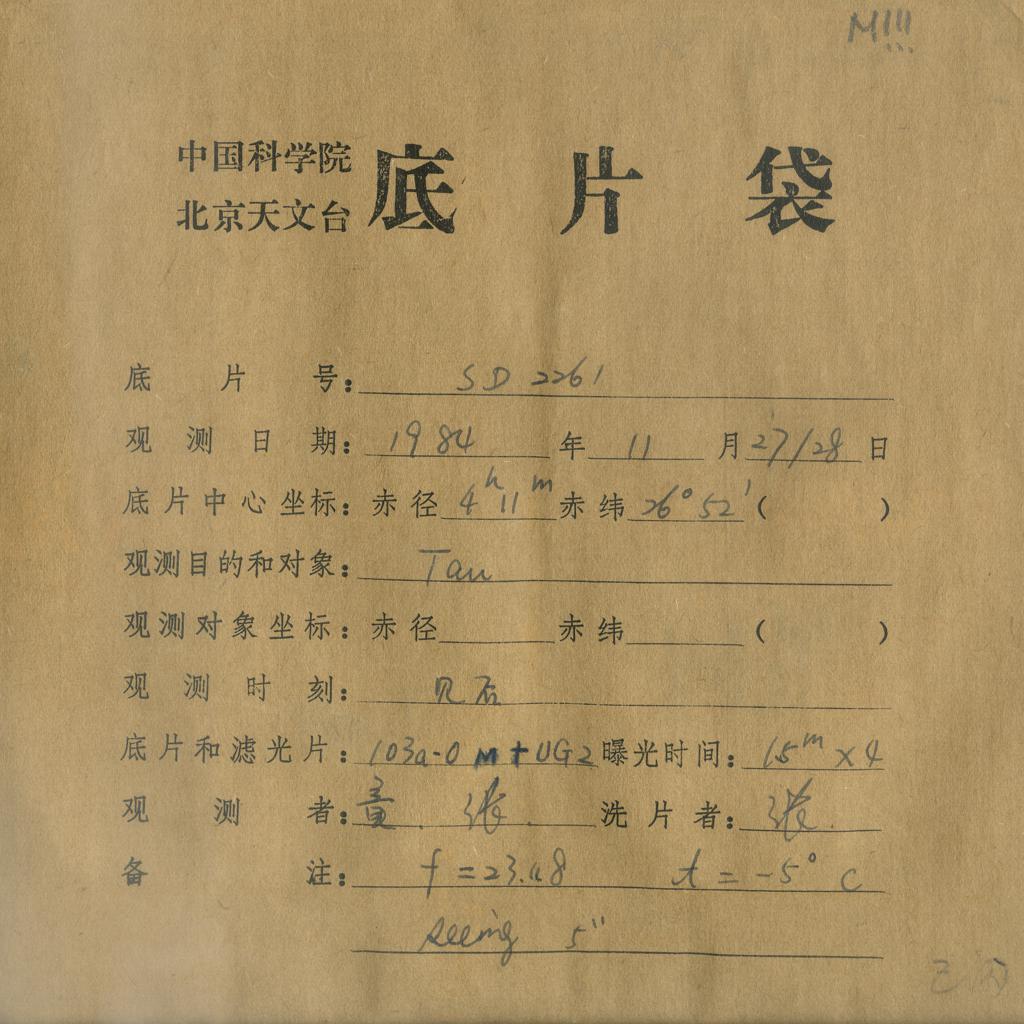 M!!!
中国科学院
北京天文台
底片袋
底片号: SD 2261
观测日期: 1984年 11月 27/28日
底片中心坐标: 赤径 4h 11m 赤纬 26° 52' ( )
观测目的和对象: Tau
观测对象坐标: 赤径 赤纬 ( )
观测时刻: 见后
底片和滤光片: 103a-O M+UG2 曝光时间: 15m×4
观测者: 黄. 张. 洗片者: 张.
备注: f=23.48 t=-5°C
seeing 5"